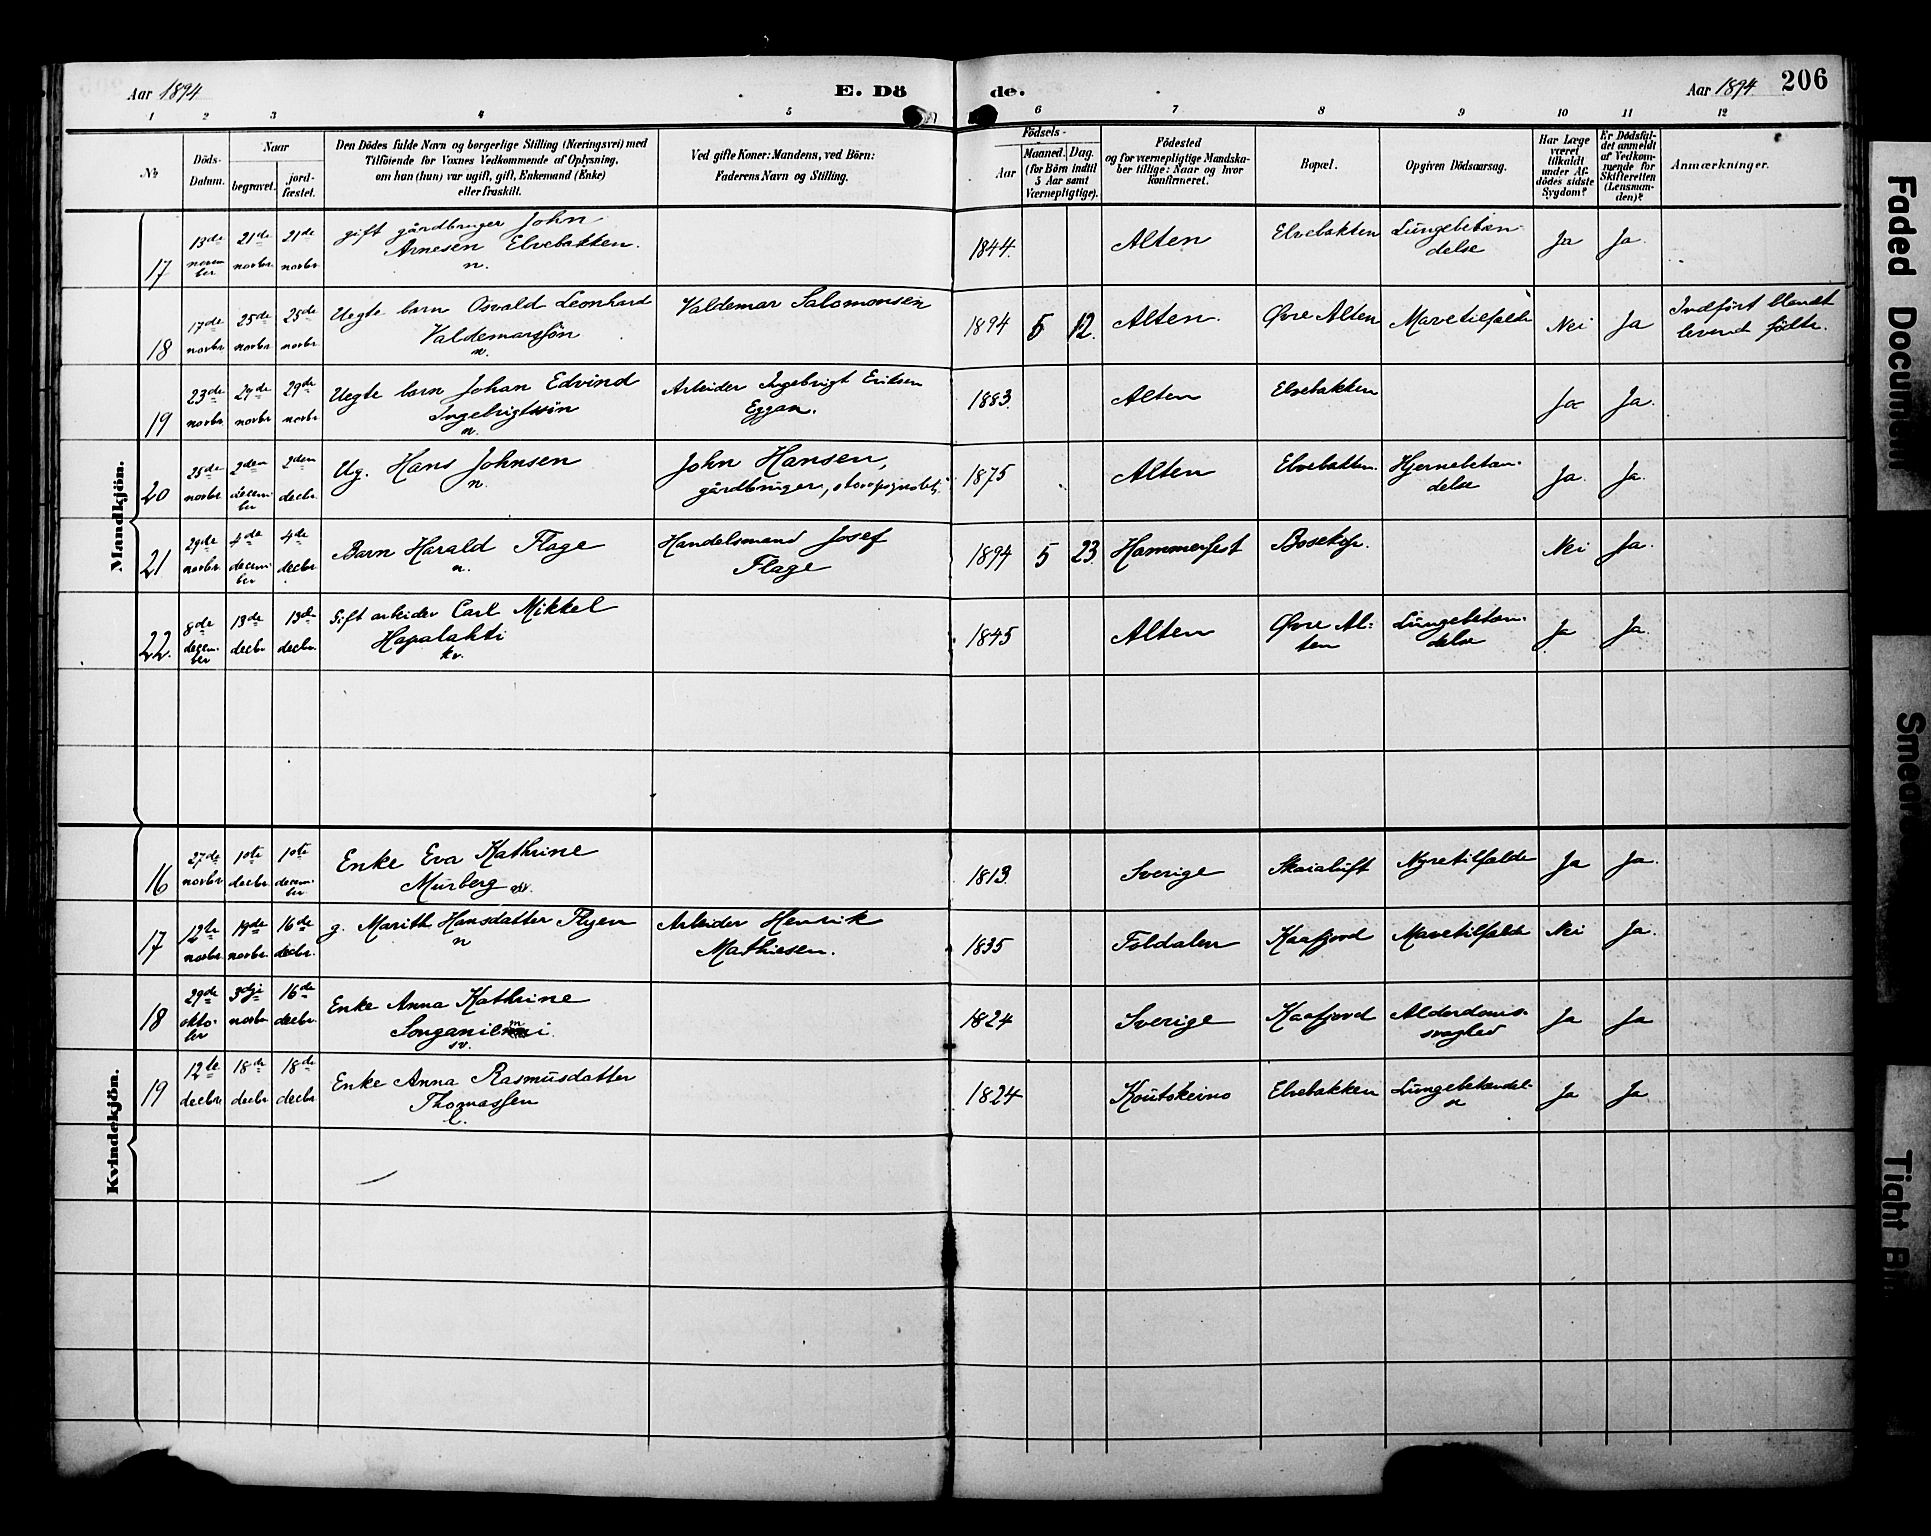 Aar 1894
E. Dö
de.
Aar 1894
206
1 2 3 4 5 6 7 8 9 10 11 12
№
Döds-
Datum.
Naar
begravet.
jord-
fæstet.
Den Dödes fulde Navn og borgerlige Stilling (Næringsvei) med
Tilföiende for Voxnes Vedkommende af Oplysning,
om han (hun) var ugift, gift, Enkemand (Enke)
eller fraskilt.
Ved gifte Koner: Mandens, ved Börn:
Faderens Navn og Stilling.
Födsels-
Aar
Maaned. Dag.
(for Börn indtil
5 Aar samt
Værnepligtige).
Födested
og for værnepligtige Mandska-
ber tillige: Naar og hvor
konfirmeret.
Bopæl.
Opgiven Dödsaarsag.
Har Læge
været
tilkaldt
under Af-
dödes sidste
Sygdom?
Er Dödsfal-
det anmeldt
af Vedkom-
mende for
Skifteretten
(Lensman-
den)?
Anmærkninger.
Mandkjön.
17 13de novem-ber 21de novbr. 21de novbr. gift gårdbruger John
Arnesen Elvebakken.
n.
1844. Alten Elvebakken Lungebetæn-
delse Ja Ja.
18 17de novbr 25de novbr. 25de novbr. Uegte barn Osvald Leonhard
Valdemarssøn
n.
Valdemar Salomonsen
1894 5 12. Alten. Øvre Alten Mavetilfælde Nei Ja Indført blandt
levende fødte.
19 23de novbr. 29de novbr. 29de novbr Uegte barn Johan Edvind
Ingebrigtssøn
n.
Arbeider Ingebrigt Eriksen
Eggan.
1883. Alten Elvebakken Ja Ja.
20 25de novbr 2den decem-ber 2den decbr. Ug. Hans Johnsen
n.
John Hansen,
gårdbruger,
1875 Alten Elvebakken. Hjernebetæn-
delse Ja. Ja.
21 29de novbr. 4de decem-ber 4de decbr. Barn Harald Flage
n.
Handelsmand Josef
Flage
1894 5 23. Hammerfest Bosekop. Nei Ja.
22. 8de decem-ber 13de decbr 13de decbr. Gift arbeider Carl Mikkel
Hapalahti
kv.
1845 Alten Øvre Al-
ten Lungebetæn-
delse Ja Ja.
Kvindekjön.
16 27de novbr. 1ste decbr. 1ste decem-ber Enke Eva Kathrine
Murberg
1813. Sverige Skaialuft Nyretilfælde Ja Ja.
17 12te novbr. 19de novbr. 16de decbr. g. Marith Hansdatter Flyen
n
Arbeider Henrik
Mathiesen.
1835 Foldalen Kaafjord Mavetilfælde Nei Ja.
18 29de okto-ber 3dje novbr 16de decbr. Enke Anna Kathrine
sv.
1824 Sverige Kaafjord Alderdoms-
svaghed Ja Ja
19 12te decbr. 18de decbr 18de decbr Enke Anna Rasmusdatter
Thomassen
l.
1824 Koutokeino Elvebakken Lungebetændel-
se Ja Ja
Faded Document
Smeare
Tight Bin